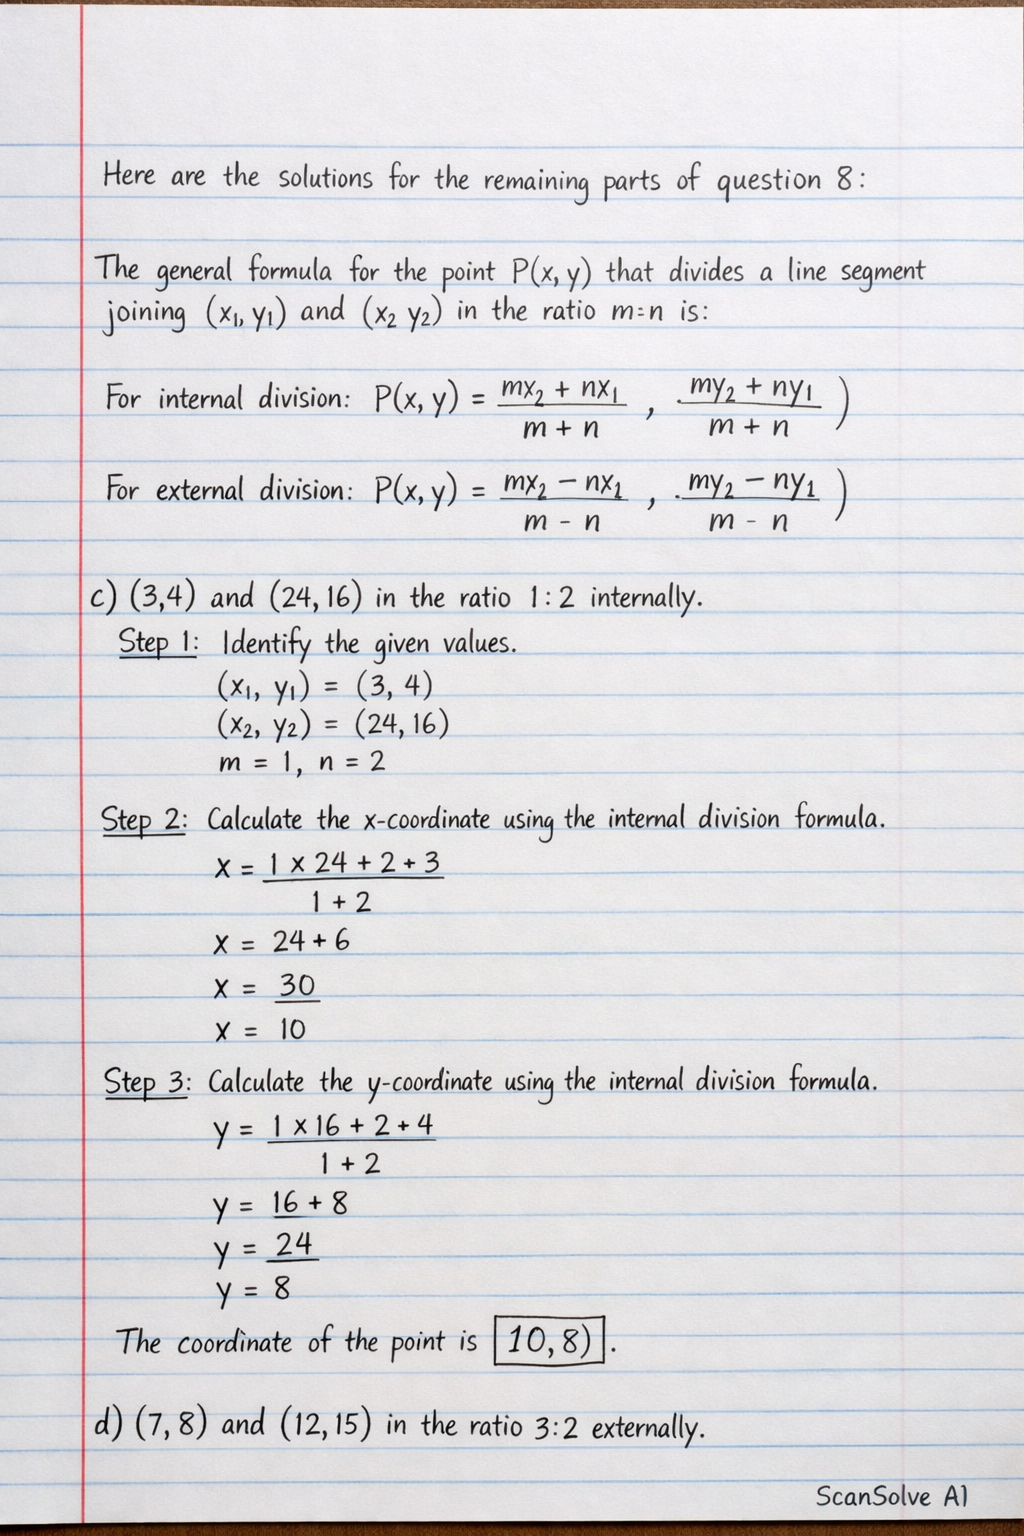 Here are the solutions for the remaining parts of question 8:
The general formula for the point P(x, y) that divides a line segment
joining (x₁, y₁) and (x₂ y₂) in the ratio m:n is:
For internal division: P(x, y) = mx₂ + nx₁ / m + n , my₂ + ny₁ / m + n )
For external division: P(x, y) = mx₂ − nx₂ / m - n , my₂ − ny₁ / m - n )
c) (3,4) and (24, 16) in the ratio 1:2 internally.
Step 1: Identify the given values.
(x₁, y₁) = (3, 4)
(x₂, y₂) = (24, 16)
m = 1, n = 2
Step 2: Calculate the x-coordinate using the internal division formula.
x = 1 × 24 + 2 + 3
1 + 2
x = 24 + 6
x = 30
x = 10
Step 3: Calculate the y-coordinate using the internal division formula.
y = 1 × 16 + 2 + 4
1 + 2
y = 16 + 8
y = 24
y = 8
The coordinate of the point is 10, 8).
d) (7, 8) and (12, 15) in the ratio 3:2 externally.
ScanSolve A1